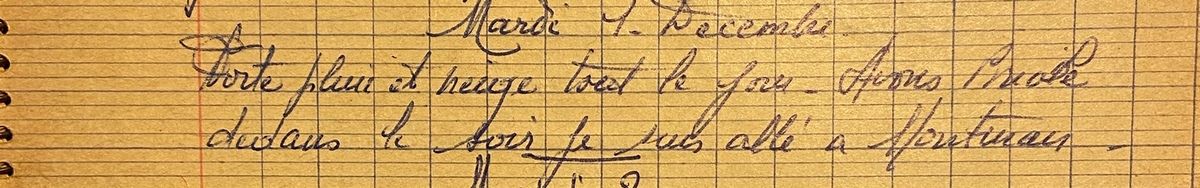 Mardi 1- Decembre
Forte pluie et neige tout le jour - Avons
dedans le soir je suis allé a